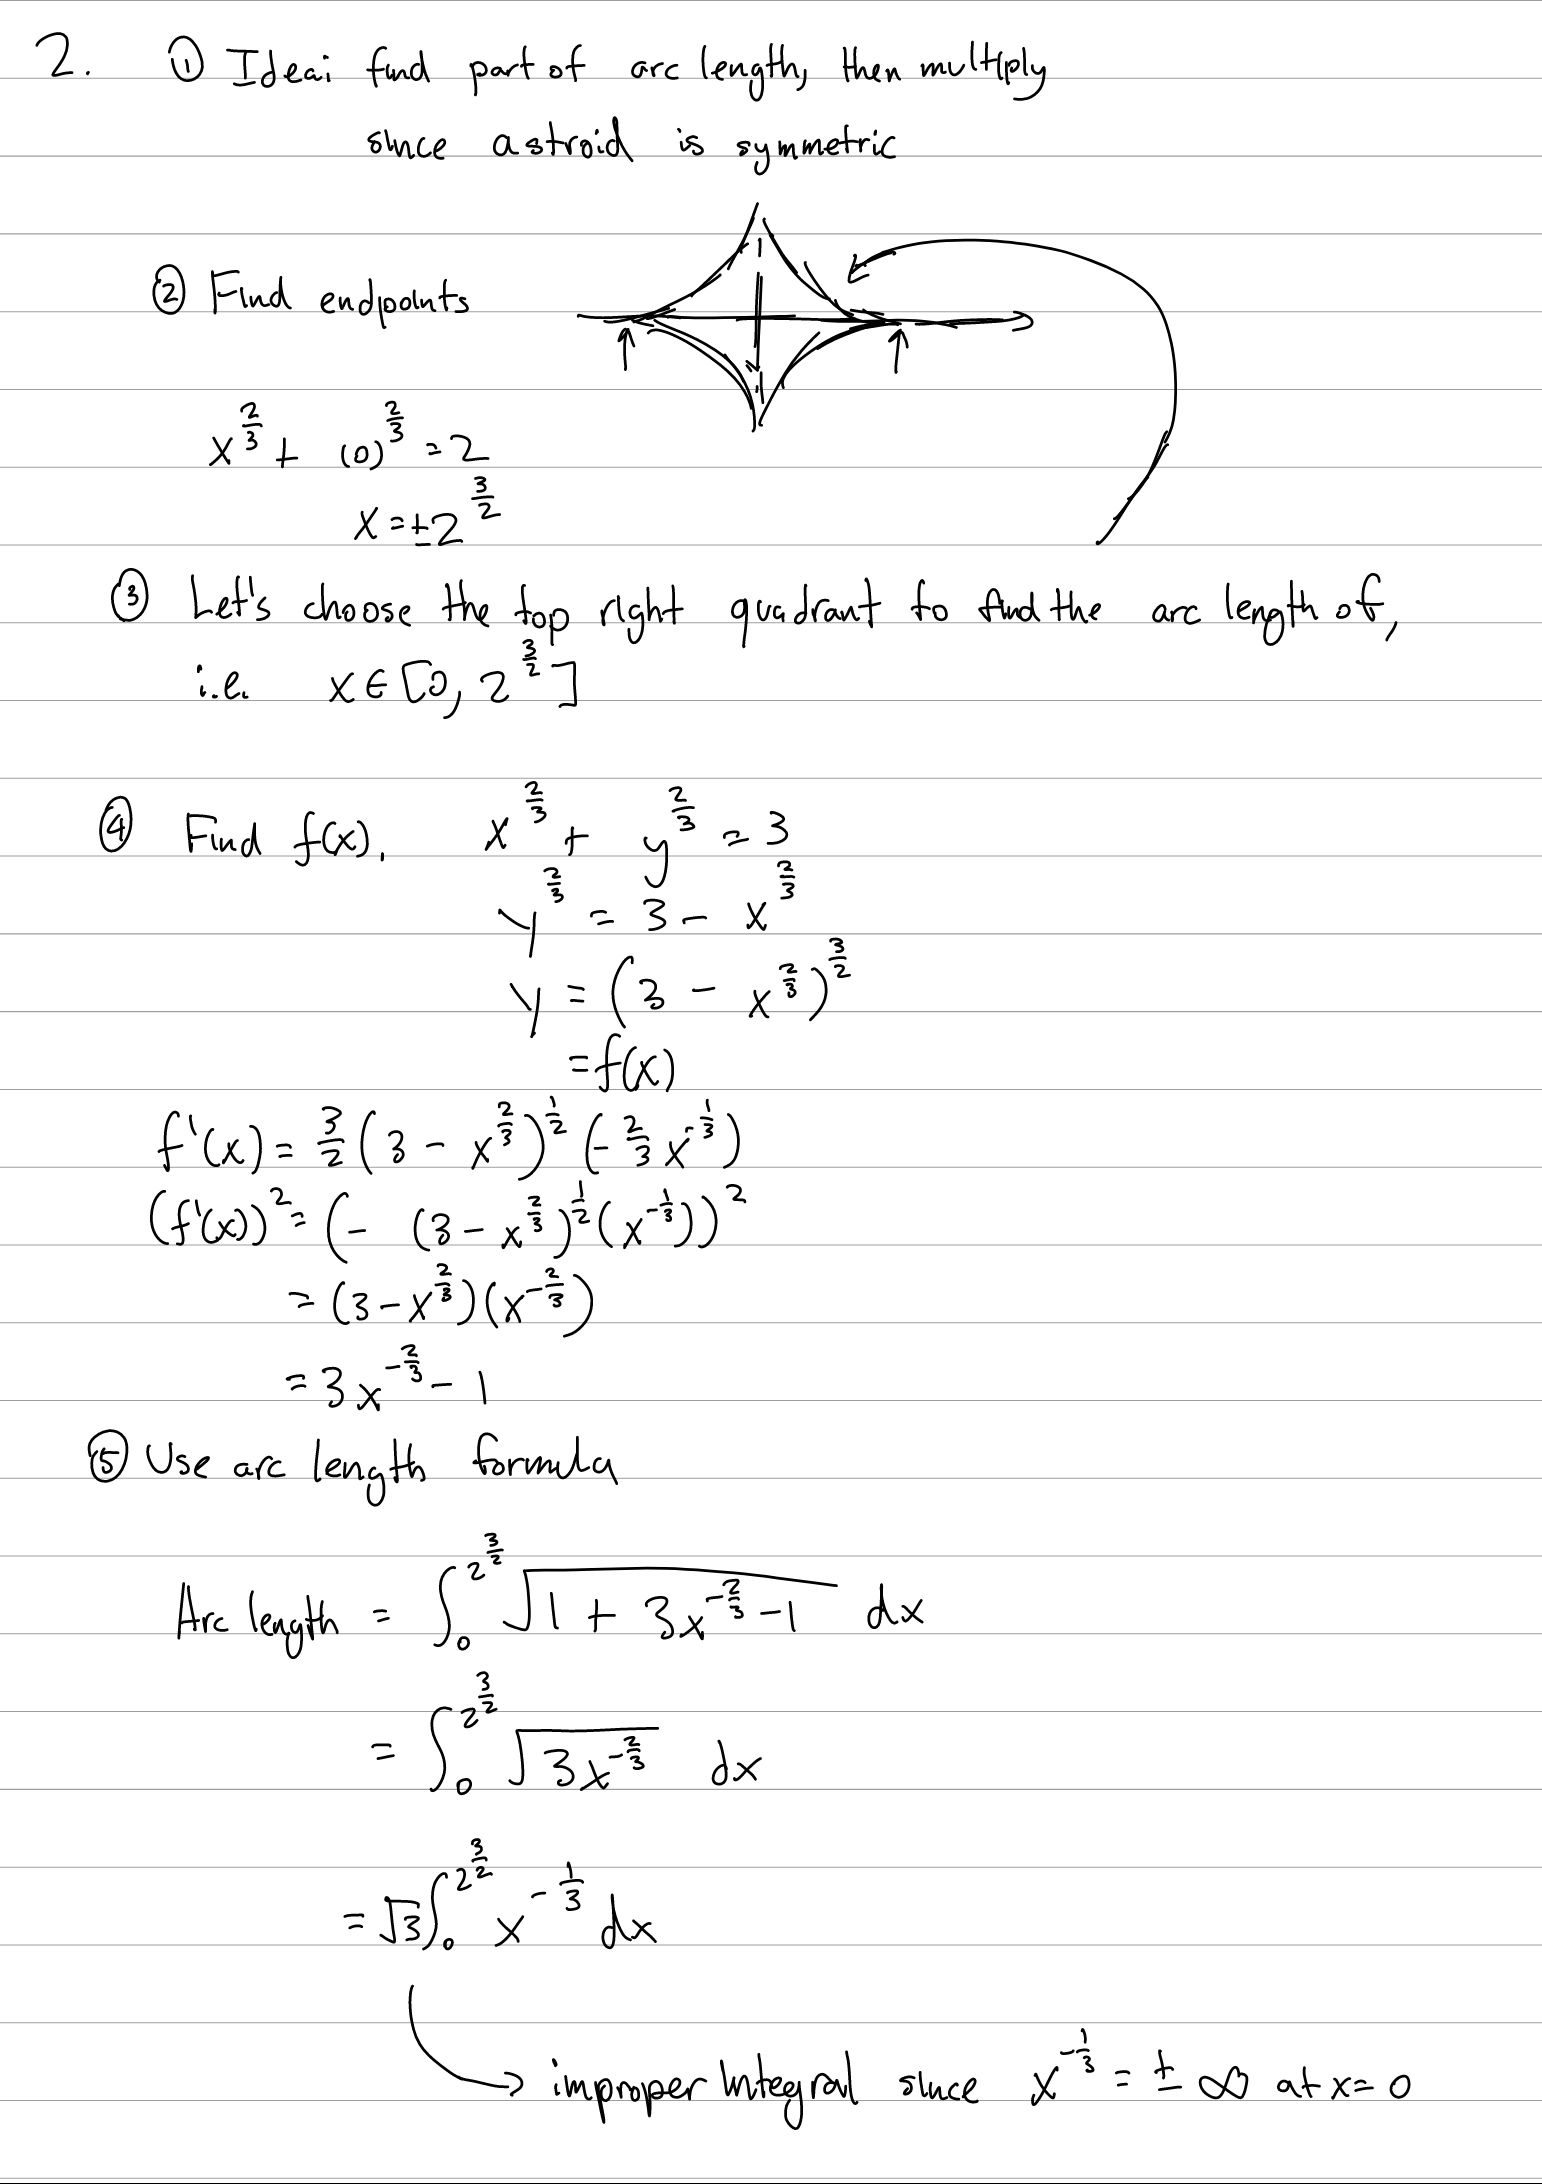 2. ① Idea: find part of arc length, then multiply
since astroid is symmetric
② Find endpoints
x^{2/3} + (0)^{2/3} = 2
x = ±2^{3/2}
③ Let's choose the top right quadrant to find the arc length of,
i.e. x ∈ [0, 2^{3/2}]
④ Find f(x). x^{2/3} + y^{2/3} = 3
y^{2/3} = 3 - x^{2/3}
y = (3 - x^{2/3})^{3/2}
= f(x)
f'(x) = 3/2 (3 - x^{2/3})^{1/2} (-2/3 x^{-1/3})
(f'(x))^2 = (- (3 - x^{2/3})^{1/2} (x^{-1/3}))^2
= (3 - x^{2/3})(x^{-2/3})
= 3x^{-2/3} - 1
⑤ Use arc length formula
Arc length = ∫_0^{2^{3/2}} √(1 + 3x^{-2/3} - 1) dx
= ∫_0^{2^{3/2}} √(3x^{-2/3}) dx
= √3 ∫_0^{2^{3/2}} x^{-1/3} dx
→ improper integral since x^{-1/3} = ± ∞ at x = 0